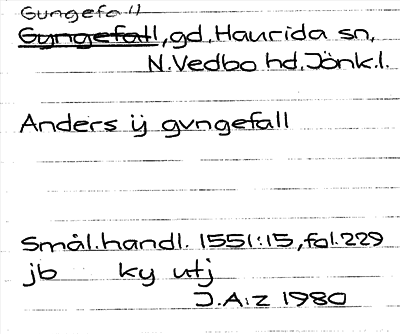 Gungefall
Gyngefall, gd, Haurida sn,
N. Vedbo hd. Jönk.l.
Anders ij gvngefall
Smål.handl. 1551:15, fol. 229
jb ky utj
J.A:z 1980